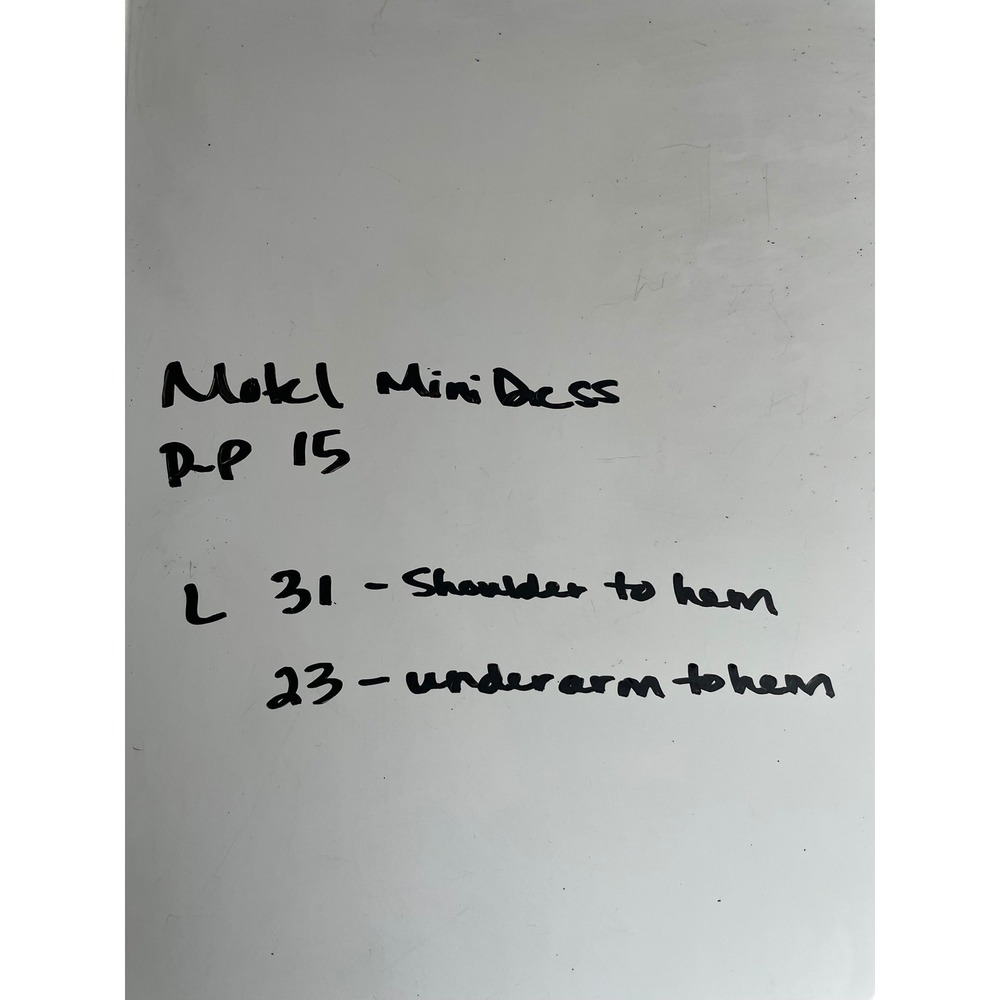 Motel Mini Dress
P-P 15
L 31 - Shoulder to hem
23 - underarm to hem